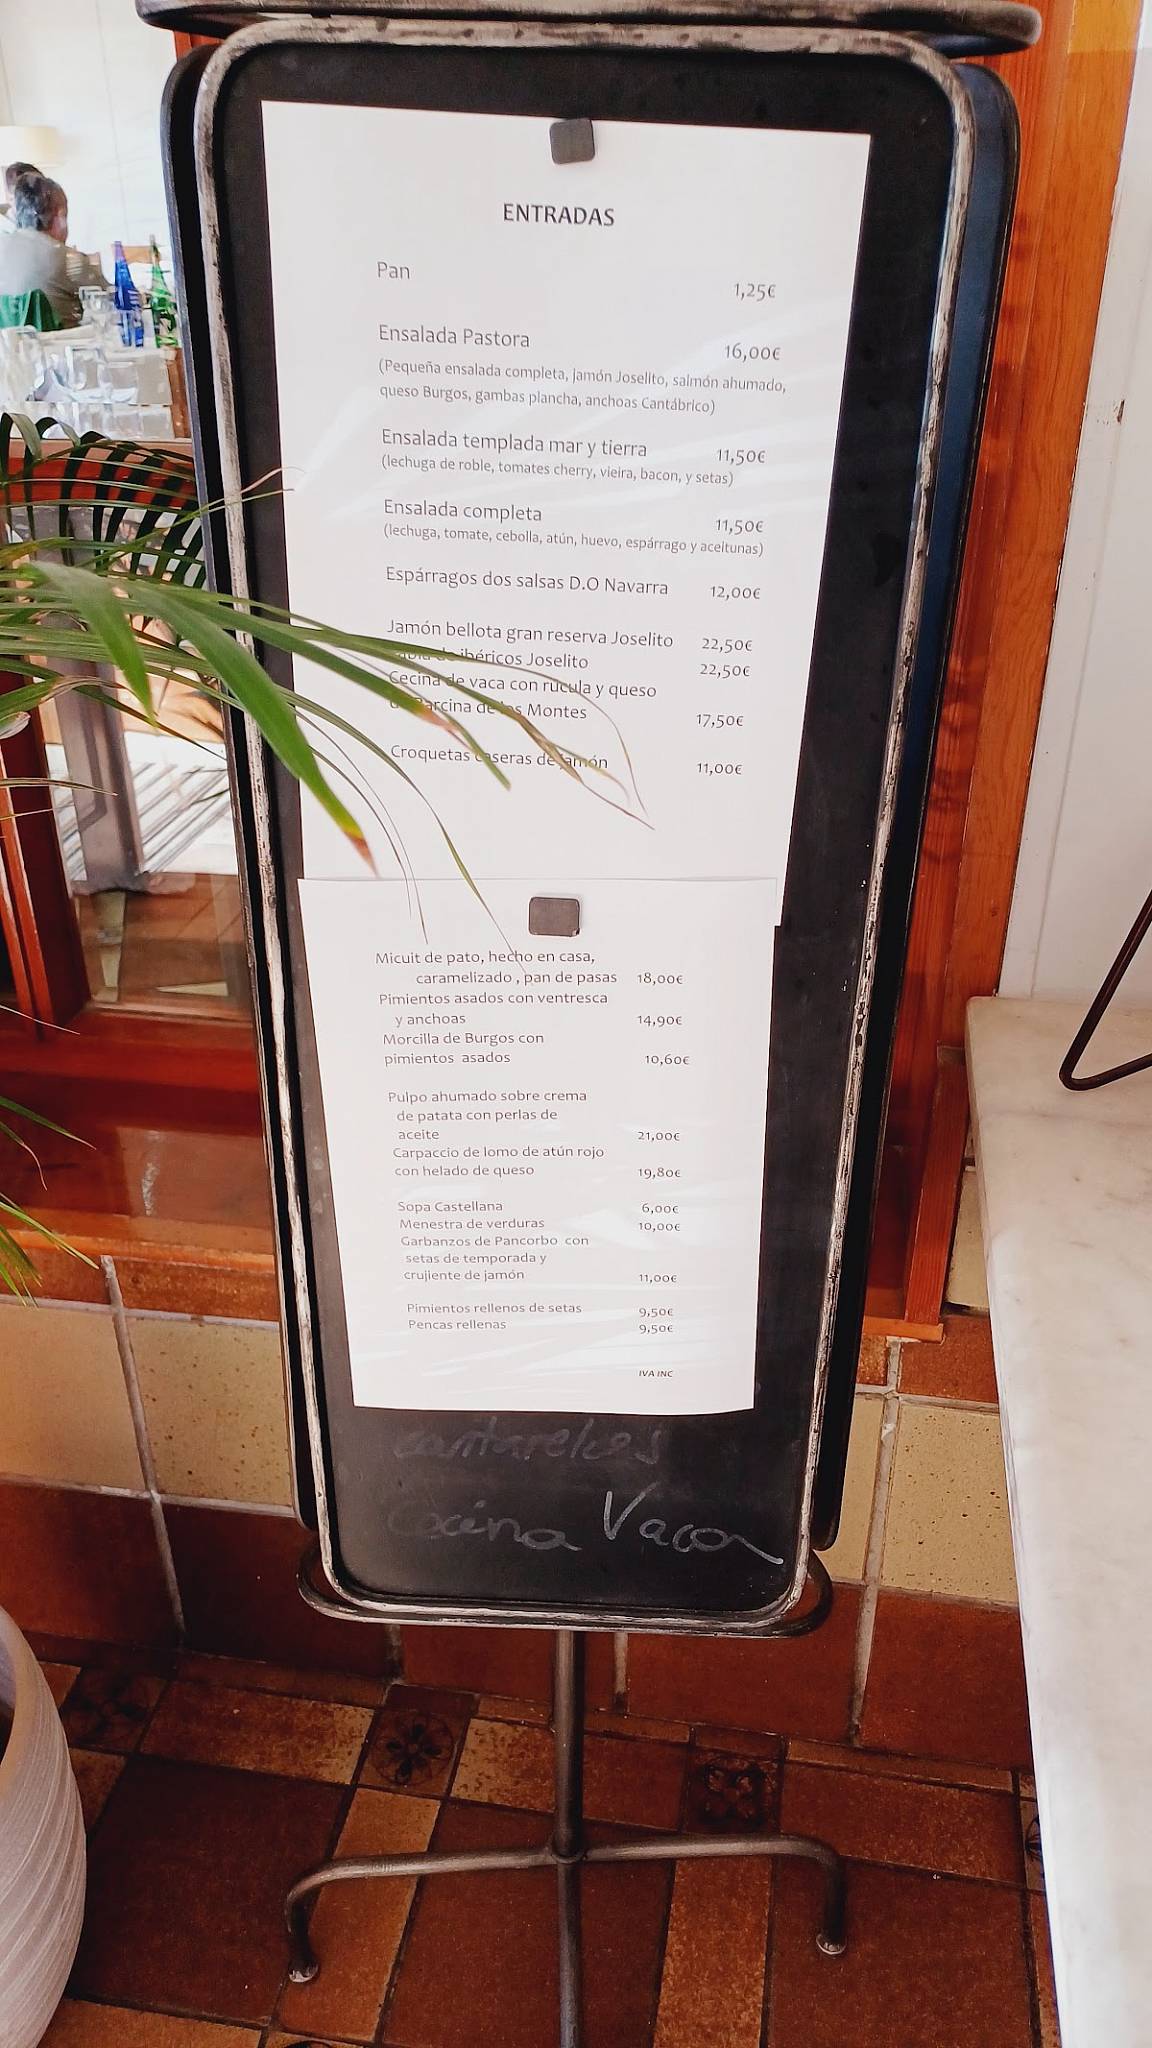 ENTRADAS
Pan 1,25€
Ensalada Pastora 16,00€
(Pequeña ensalada completa, jamón Joselito, salmón ahumado,
queso Burgos, gambas plancha, anchoas Cantábrico)
Ensalada templada mar y tierra 11,50€
(lechuga de roble, tomates cherry, vieira, bacon, y setas)
Ensalada completa 11,50€
(lechuga, tomate, cebolla, atún, huevo, espárrago y aceitunas)
Espárragos dos salsas D.O Navarra 12,00€
Jamón bellota gran reserva Joselito 22,50€
Tabla de ibéricos Joselito 22,50€
Cecina de vaca con rúcula y queso
de Barcina de los Montes 17,50€
Croquetas caseras de jamón 11,00€
Micuit de pato, hecho en casa,
caramelizado , pan de pasas 18,00€
Pimientos asados con ventresca
y anchoas 14,90€
Morcilla de Burgos con
pimientos asados 10,60€
Pulpo ahumado sobre crema
de patata con perlas de
aceite 21,00€
Carpaccio de lomo de atún rojo
con helado de queso 19,80€
Sopa Castellana 6,00€
Menestra de verduras 10,00€
Garbanzos de Pancorbo con
setas de temporada y
crujiente de jamón 11,00€
Pimientos rellenos de setas 9,50€
Pencas rellenas 9,50€
IVA INC
Vaca